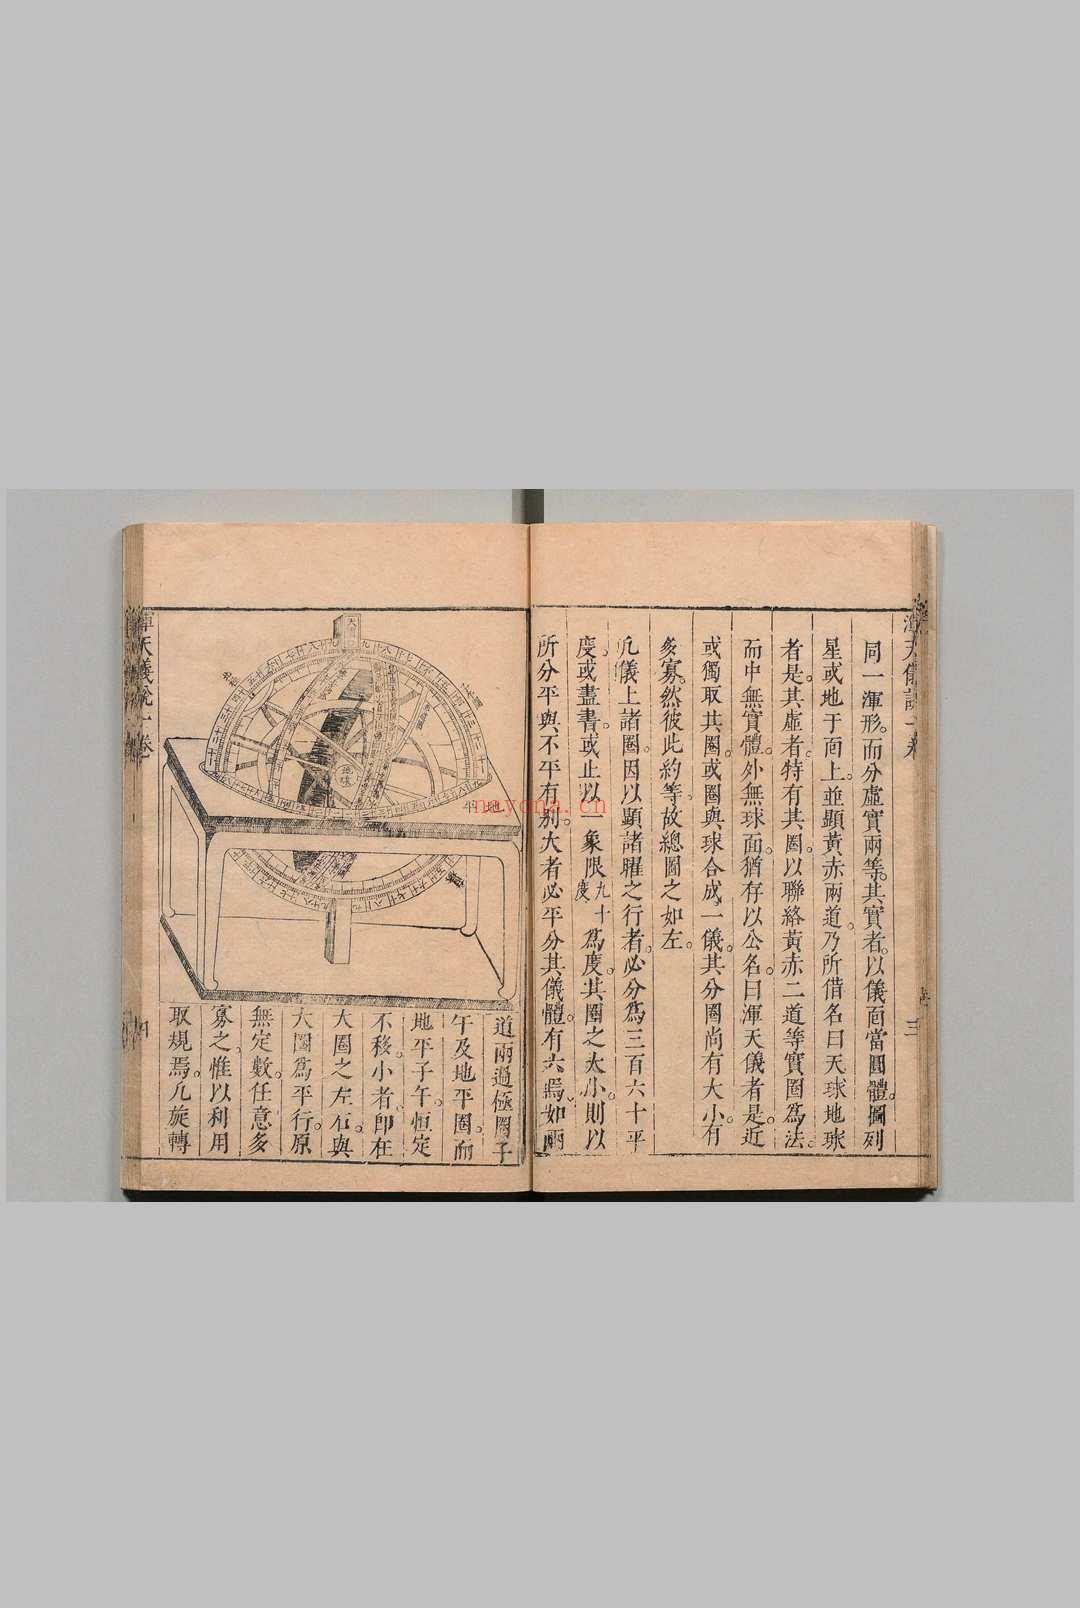 同一渾形。而分虛實兩等。其實者。以儀面當圓體。圖列
星或地于面上。並顯黃赤兩道。乃所借名曰天球地球
者是。其虛者。特有其圈。以聯絡黃赤二道等實圈為法。
而中無實體。外無球面。猶存以公名。名曰渾天儀者是。近
或獨取其圈。或圈與球合成一儀。其分圈尚有大小。有
多寡。然彼此約等。故總圖之如左。
凡儀上諸圈。因以顯諸曜之行者。必分為三百六十平
度。或盡書。或止以一象限九十度為度。其圈之大小。則以
所分平與不平有別。大者必平分其儀體。有六焉。如兩
道兩過極圈子
午及地平圈。而
地平子午。恒定
不移。小者。即在
大圈之左右。與
大圈為平行。原
無定數。任意多
寡之。惟以利用
取規焉。凡旋轉
渾天儀說一卷
三
渾天儀說一卷
四
地球
地平
nayona.cn